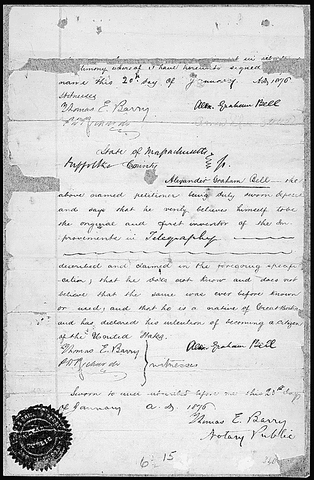 in testimony whereof I have hereunto signed my
name this 20th day of January A.D. 1876
Witnesses
Thomas E. Barry Alex. Graham Bell
P. D. Richards
State of Massachusetts
Suffolk County } ss.
Alexander Graham Bell the
above named petitioner being duly sworn deposes
and says that he verily believes himself to be
the original and first inventor of the Im-
provements in Telegraphy
described and claimed in the foregoing specifi-
cation; that he does not know and does not
believe that the same was ever before known
or used; and that he is a native of Great Britain
and has declared his intention of becoming a citizen
of the United States.
Thomas E. Barry Alex. Graham Bell
P. D. Richards } witnesses
Sworn to and subscribed before me this 20th day
of January A.D. 1876
Thomas E. Barry
Notary Public
PUBLIC
6 15